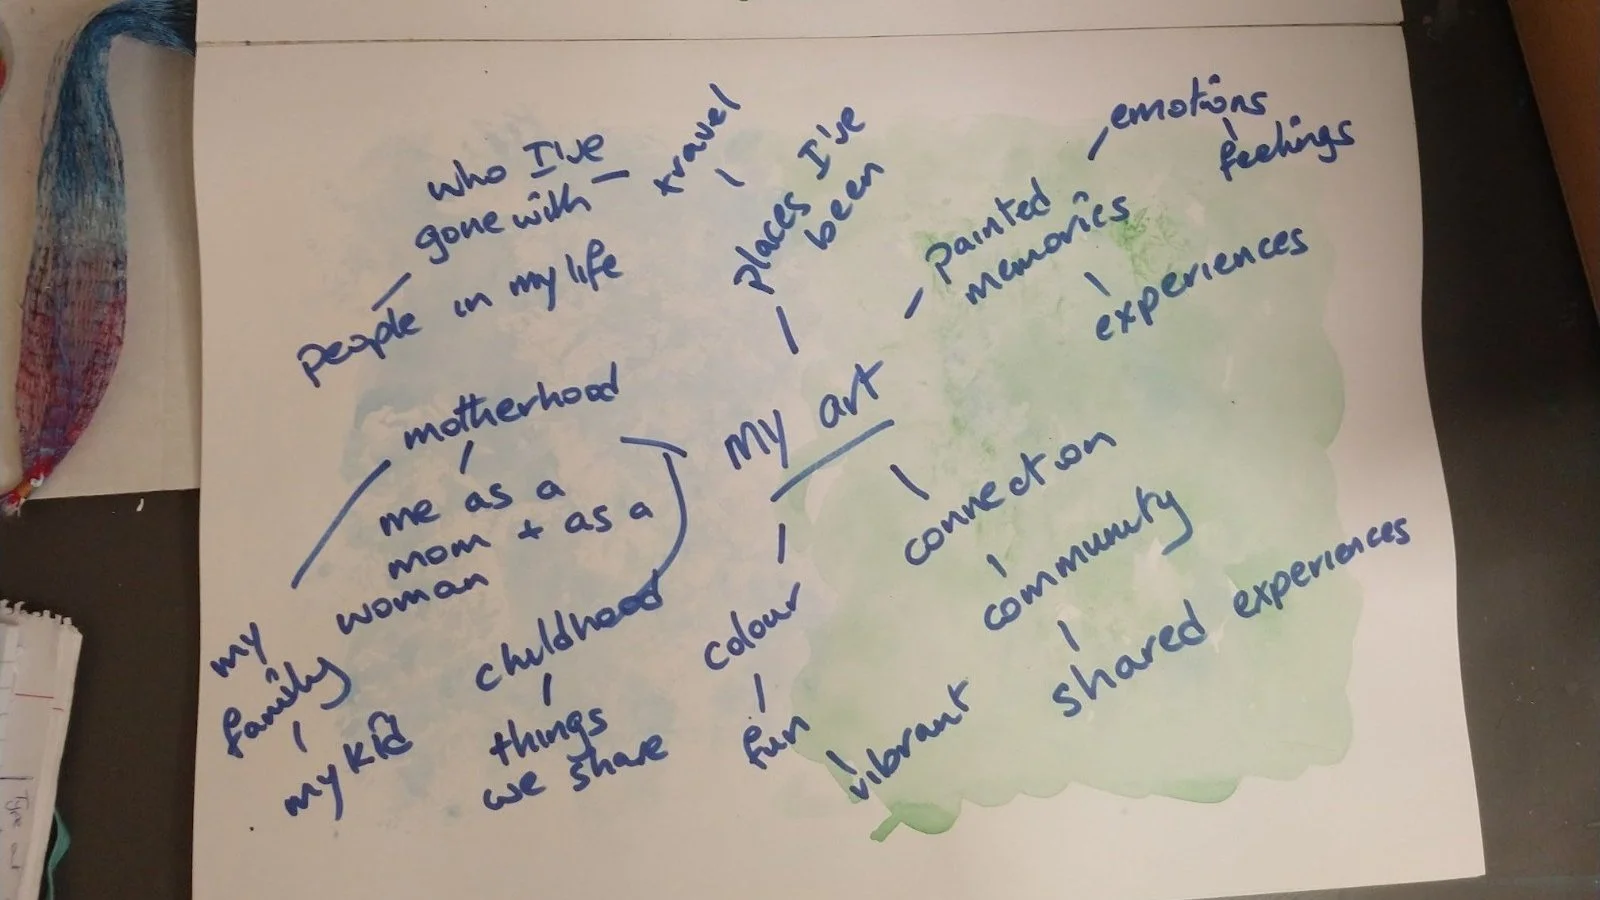 who I've
gone with
travel
places I've
been
people in my life
painted
memories
emotions
feelings
experiences
My art
motherhood
me as a
mom + as a
woman
my
family
my kid
childhood
things
we share
colour
fun
vibrant
connection
community
shared experiences